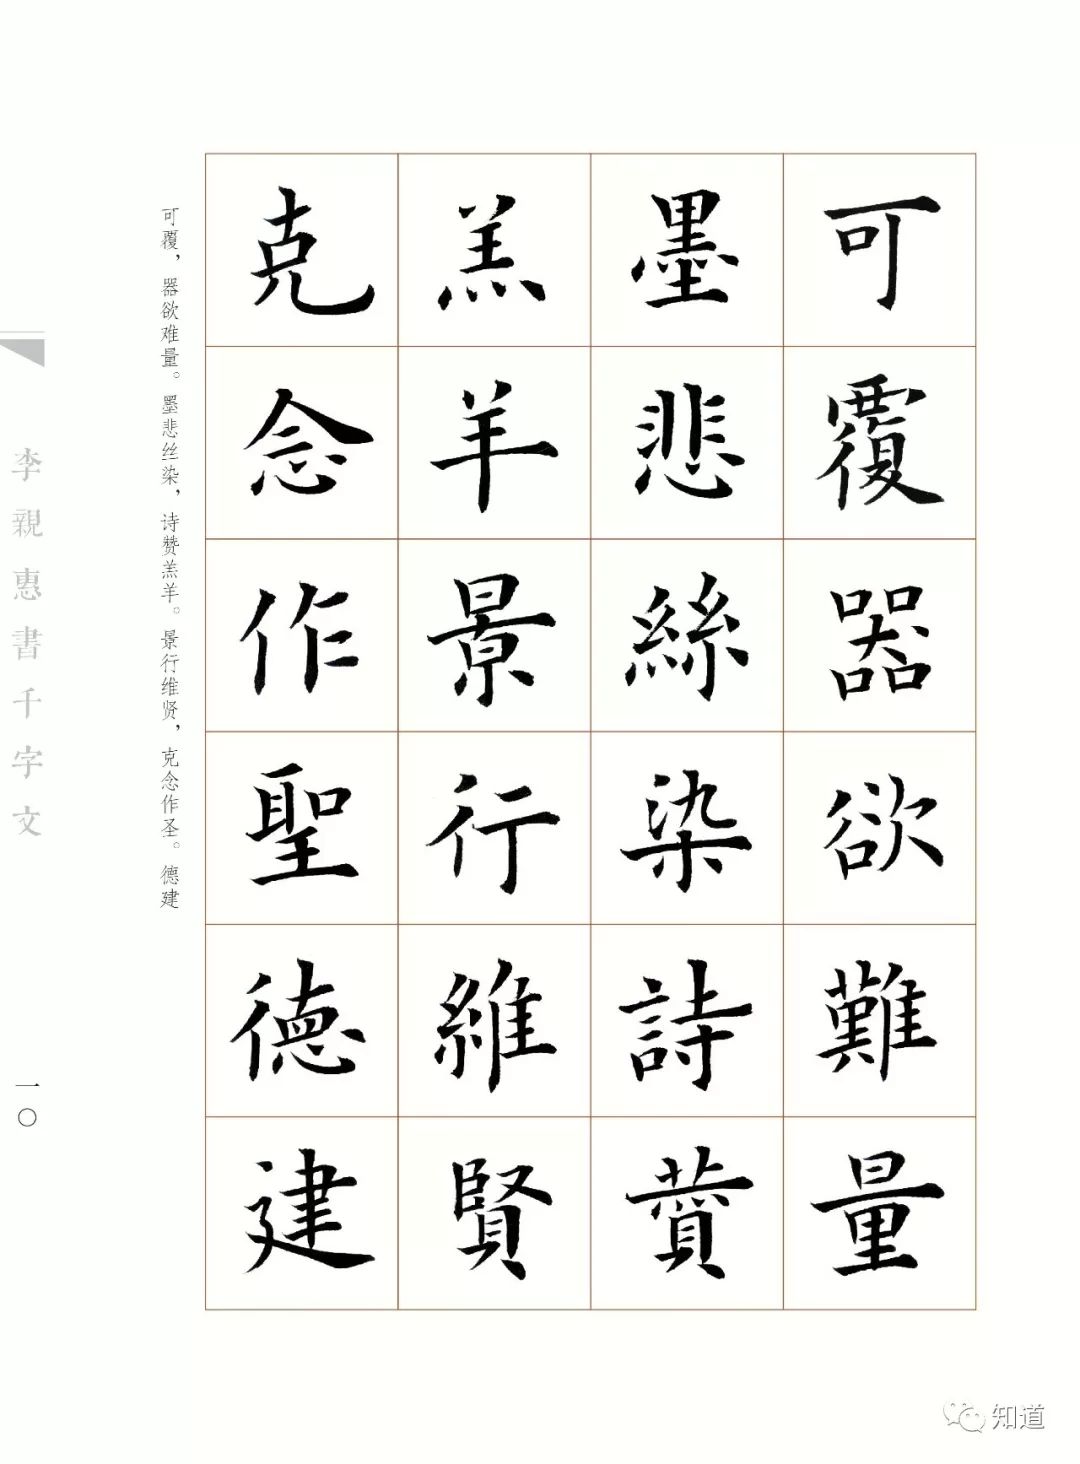 可覆器欲難量
墨悲絲染詩賛
羔羊景行維賢
克念作聖德建
可覆，器欲难量。墨悲丝染，诗赞羔羊。景行维贤，克念作圣。德建
李親惠書千字文
一〇
知道